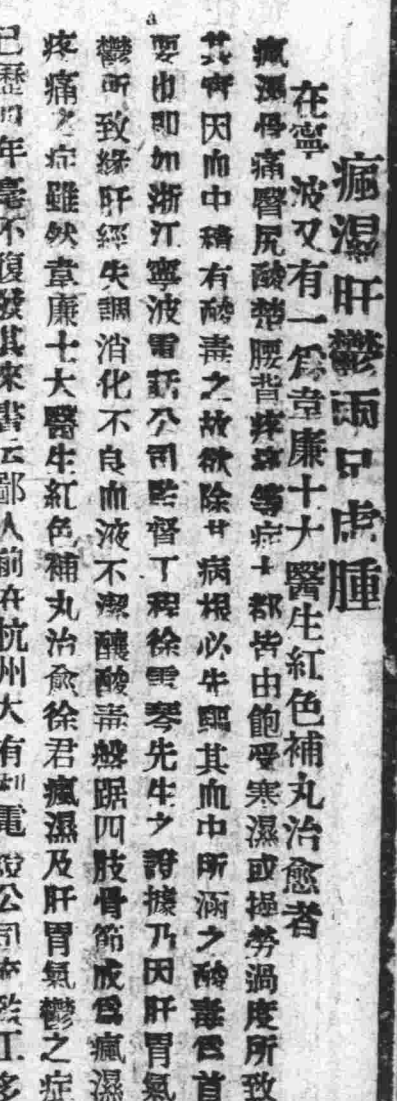 瘋濕肝鬱兩足虛腫
在寧波又有一爲韋廉士大醫生紅色補丸治愈者
瘋濕骨痛臀尻酸楚腰背疼痛等症大都皆由飽受寒濕或操勞過度所致
其實因血中積有酸毒之故欲除其病根必先驅其血中所滿之酸毒爲首
要也即如浙江寧波電話公司監督工程徐雲琴先生之證據乃因肝胃氣
鬱所致緣肝經失調消化不良血液不潔釀酸毒盤踞四肢骨節成爲瘋濕
疼痛之症雖然韋廉士大醫生紅色補丸治愈徐君瘋濕及肝胃氣鬱之症
已歷四年毫不復發其來書云鄙人前在杭州大有利電 公司 監工多